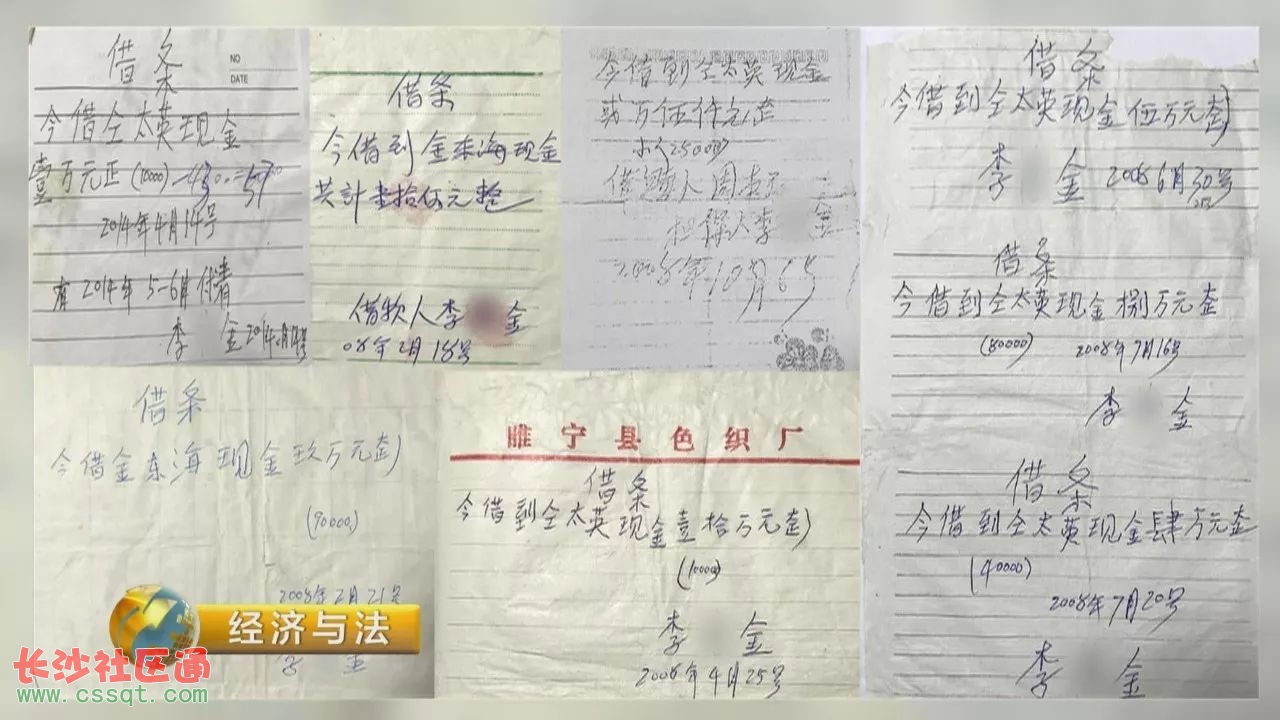 借条
NO
DATE
今借仝太英现金
壹万元正(10000)
2014年4月14号
有2014年5-6月付清
李 金2014
借条
今借到金东海现金
共计壹拾伍元整
借款人李 金
08年2月18号
今借到仝太英现金
贰万伍仟元整
借款人周
担保人李 金
2008年10月6号
借条
今借到仝太英现金伍万元整
李 金 2008 6月30号
借条
今借到仝太英现金捌万元整
(80000) 2008年7月16号
李 金
借条
今借到仝太英现金肆万元整
(40000)
2008年7月20号
李 金
借条
今借金东海现金玖万元整
(90000)
2008年2月21号
李 金
睢宁县色织厂
借条
今借到仝太英现金壹拾万元整
李 金
2008年4月25号
经济与法
长沙社区通
www.cssqt.com